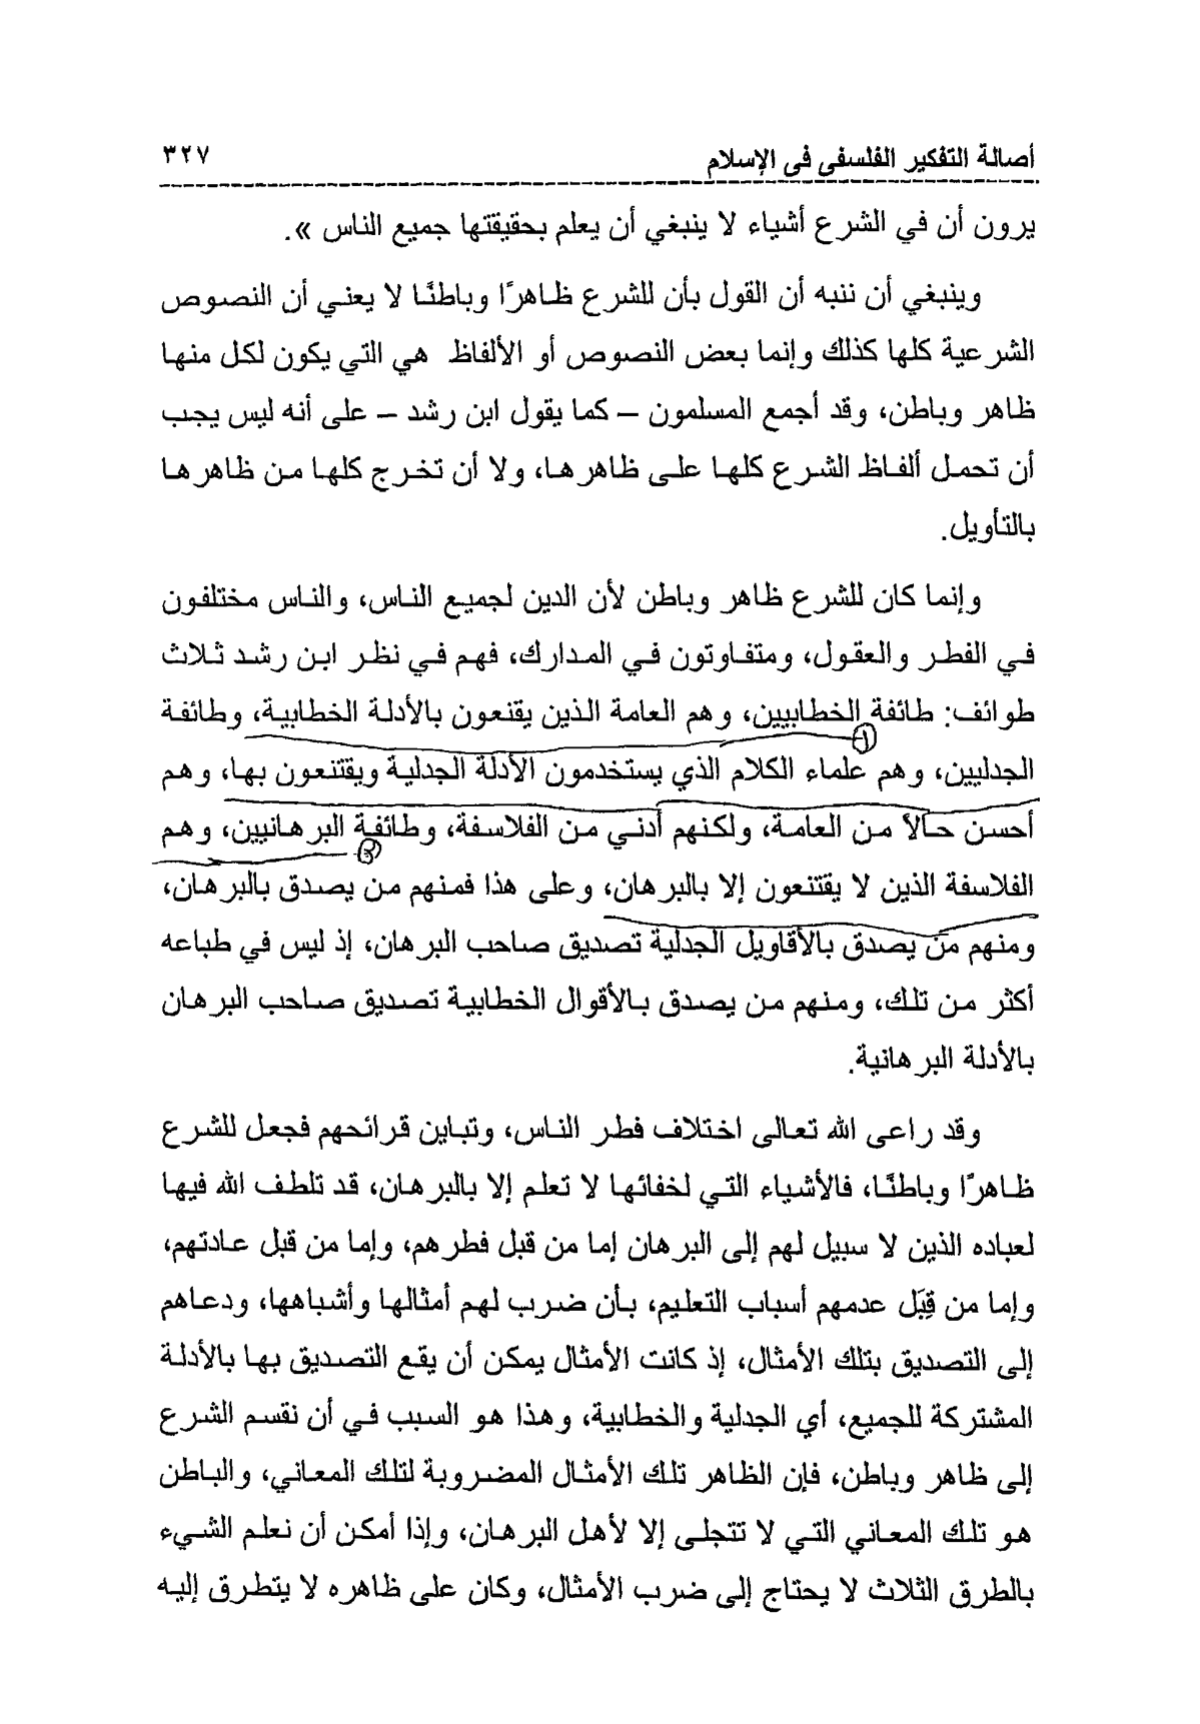 أصالة التفكير الفلسفى فى الإسلام ٣٢٧
يرون أن في الشرع أشياء لا ينبغي أن يعلم بحقيقتها جميع الناس ».
وينبغي أن ننبه أن القول بأن للشرع ظاهرًا وباطنًا لا يعني أن النصوص
الشرعية كلها كذلك وإنما بعض النصوص أو الألفاظ هي التي يكون لكل منها
ظاهر وباطن، وقد أجمع المسلمون – كما يقول ابن رشد – على أنه ليس يجب
أن تحمل ألفاظ الشرع كلها على ظاهرها، ولا أن تخرج كلها من ظاهرها
بالتأويل.
وإنما كان للشرع ظاهر وباطن لأن الدين لجميع الناس، والناس مختلفون
في الفطر والعقول، ومتفاوتون في المدارك، فهم في نظر ابن رشد ثلاث
طوائف: طائفة الخطابيين، وهم العامة الذين يقنعون بالأدلة الخطابية، وطائفة
الجدليين، وهم علماء الكلام الذي يستخدمون الأدلة الجدلية ويقتنعون بها، وهم
أحسن حالاً من العامة، ولكنهم أدني من الفلاسفة، وطائفة البرهانيين، وهم
الفلاسفة الذين لا يقتنعون إلا بالبرهان، وعلى هذا فمنهم من يصدق بالبرهان،
ومنهم من يصدق بالأقاويل الجدلية تصديق صاحب البرهان، إذ ليس في طباعه
أكثر من تلك، ومنهم من يصدق بالأقوال الخطابية تصديق صاحب البرهان
بالأدلة البرهانية.
وقد راعى الله تعالى اختلاف فطر الناس، وتباين قرائحهم فجعل للشرع
ظاهرًا وباطنًا، فالأشياء التي لخفائها لا تعلم إلا بالبرهان، قد تلطف الله فيها
لعباده الذين لا سبيل لهم إلى البرهان إما من قبل فطرهم، وإما من قبل عادتهم،
وإما من قِبَل عدمهم أسباب التعليم، بأن ضرب لهم أمثالها وأشباهها، ودعاهم
إلى التصديق بتلك الأمثال، إذ كانت الأمثال يمكن أن يقع التصديق بها بالأدلة
المشتركة للجميع، أي الجدلية والخطابية، وهذا هو السبب في أن نقسم الشرع
إلى ظاهر وباطن، فإن الظاهر تلك الأمثال المضروبة لتلك المعاني، والباطن
هو تلك المعاني التي لا تتجلى إلا لأهل البرهان، وإذا أمكن أن نعلم الشيء
بالطرق الثلاث لا يحتاج إلى ضرب الأمثال، وكان على ظاهره لا يتطرق إليه